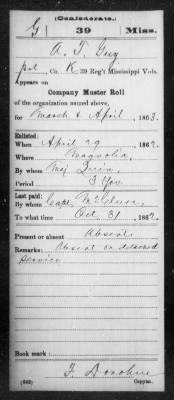 (Confederate.)
G 39 Miss.
A. T. Guy
Pvt, Co. K, 39 Reg't Mississippi Vols.
Appears on
Company Muster Roll
of the organization named above,
for March & April, 1863.
Enlisted:
When April 29, 1862.
Where Magnolia
By whom Maj. Quin
Period 3 Yrs
Last paid:
By whom Capt.
To what time Oct 31, 1862.
Present or absent Absent
Remarks: Absent on detached
service
Book mark:
(642) F. Donohue
Copyist.